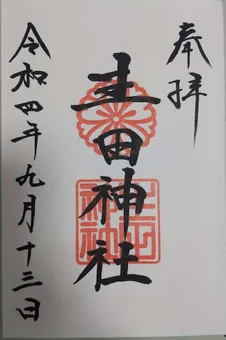 奉拝
圭田神社
令和四年九月十三日